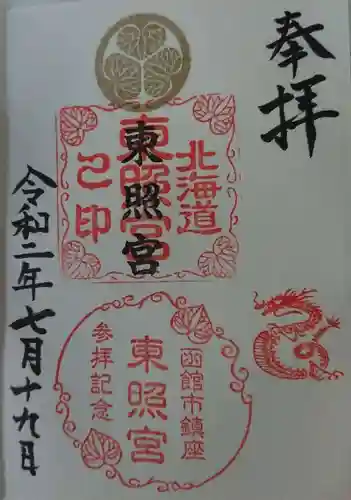 奉拝
北海道
東照宮
之印
東照宮
函館市鎮座
東照宮
参拝記念
令和二年七月十九日